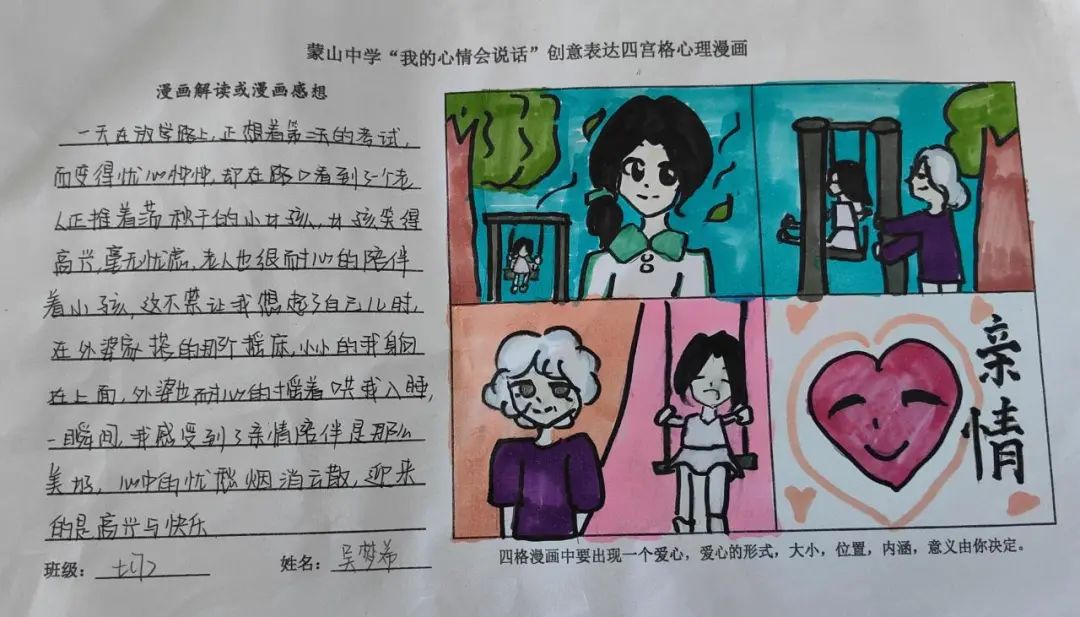 蒙山中学“我的心情会说话”创意表达四宫格心理漫画
漫画解读或漫画感想
一天在放学路上,正想着第二天的考试,
而变得忧心忡忡,却在路口看到了一个老
人正推着荡秋千的小女孩,女孩笑得
高兴,毫无忧虑,老人也很耐心的陪伴
着小孩,这不禁让我想起了自己儿时,
在外婆家摇的那个摇床,小小的我躺
在上面,外婆也耐心的摇着哄我入睡,
一瞬间,我感受到了亲情陪伴是那么
美好,心中的忧愁烟消云散,迎来
的是高兴与快乐
班级:
姓名:吴梦希
亲情
四格漫画中要出现一个爱心,爱心的形式,大小,位置,内涵,意义由你决定。